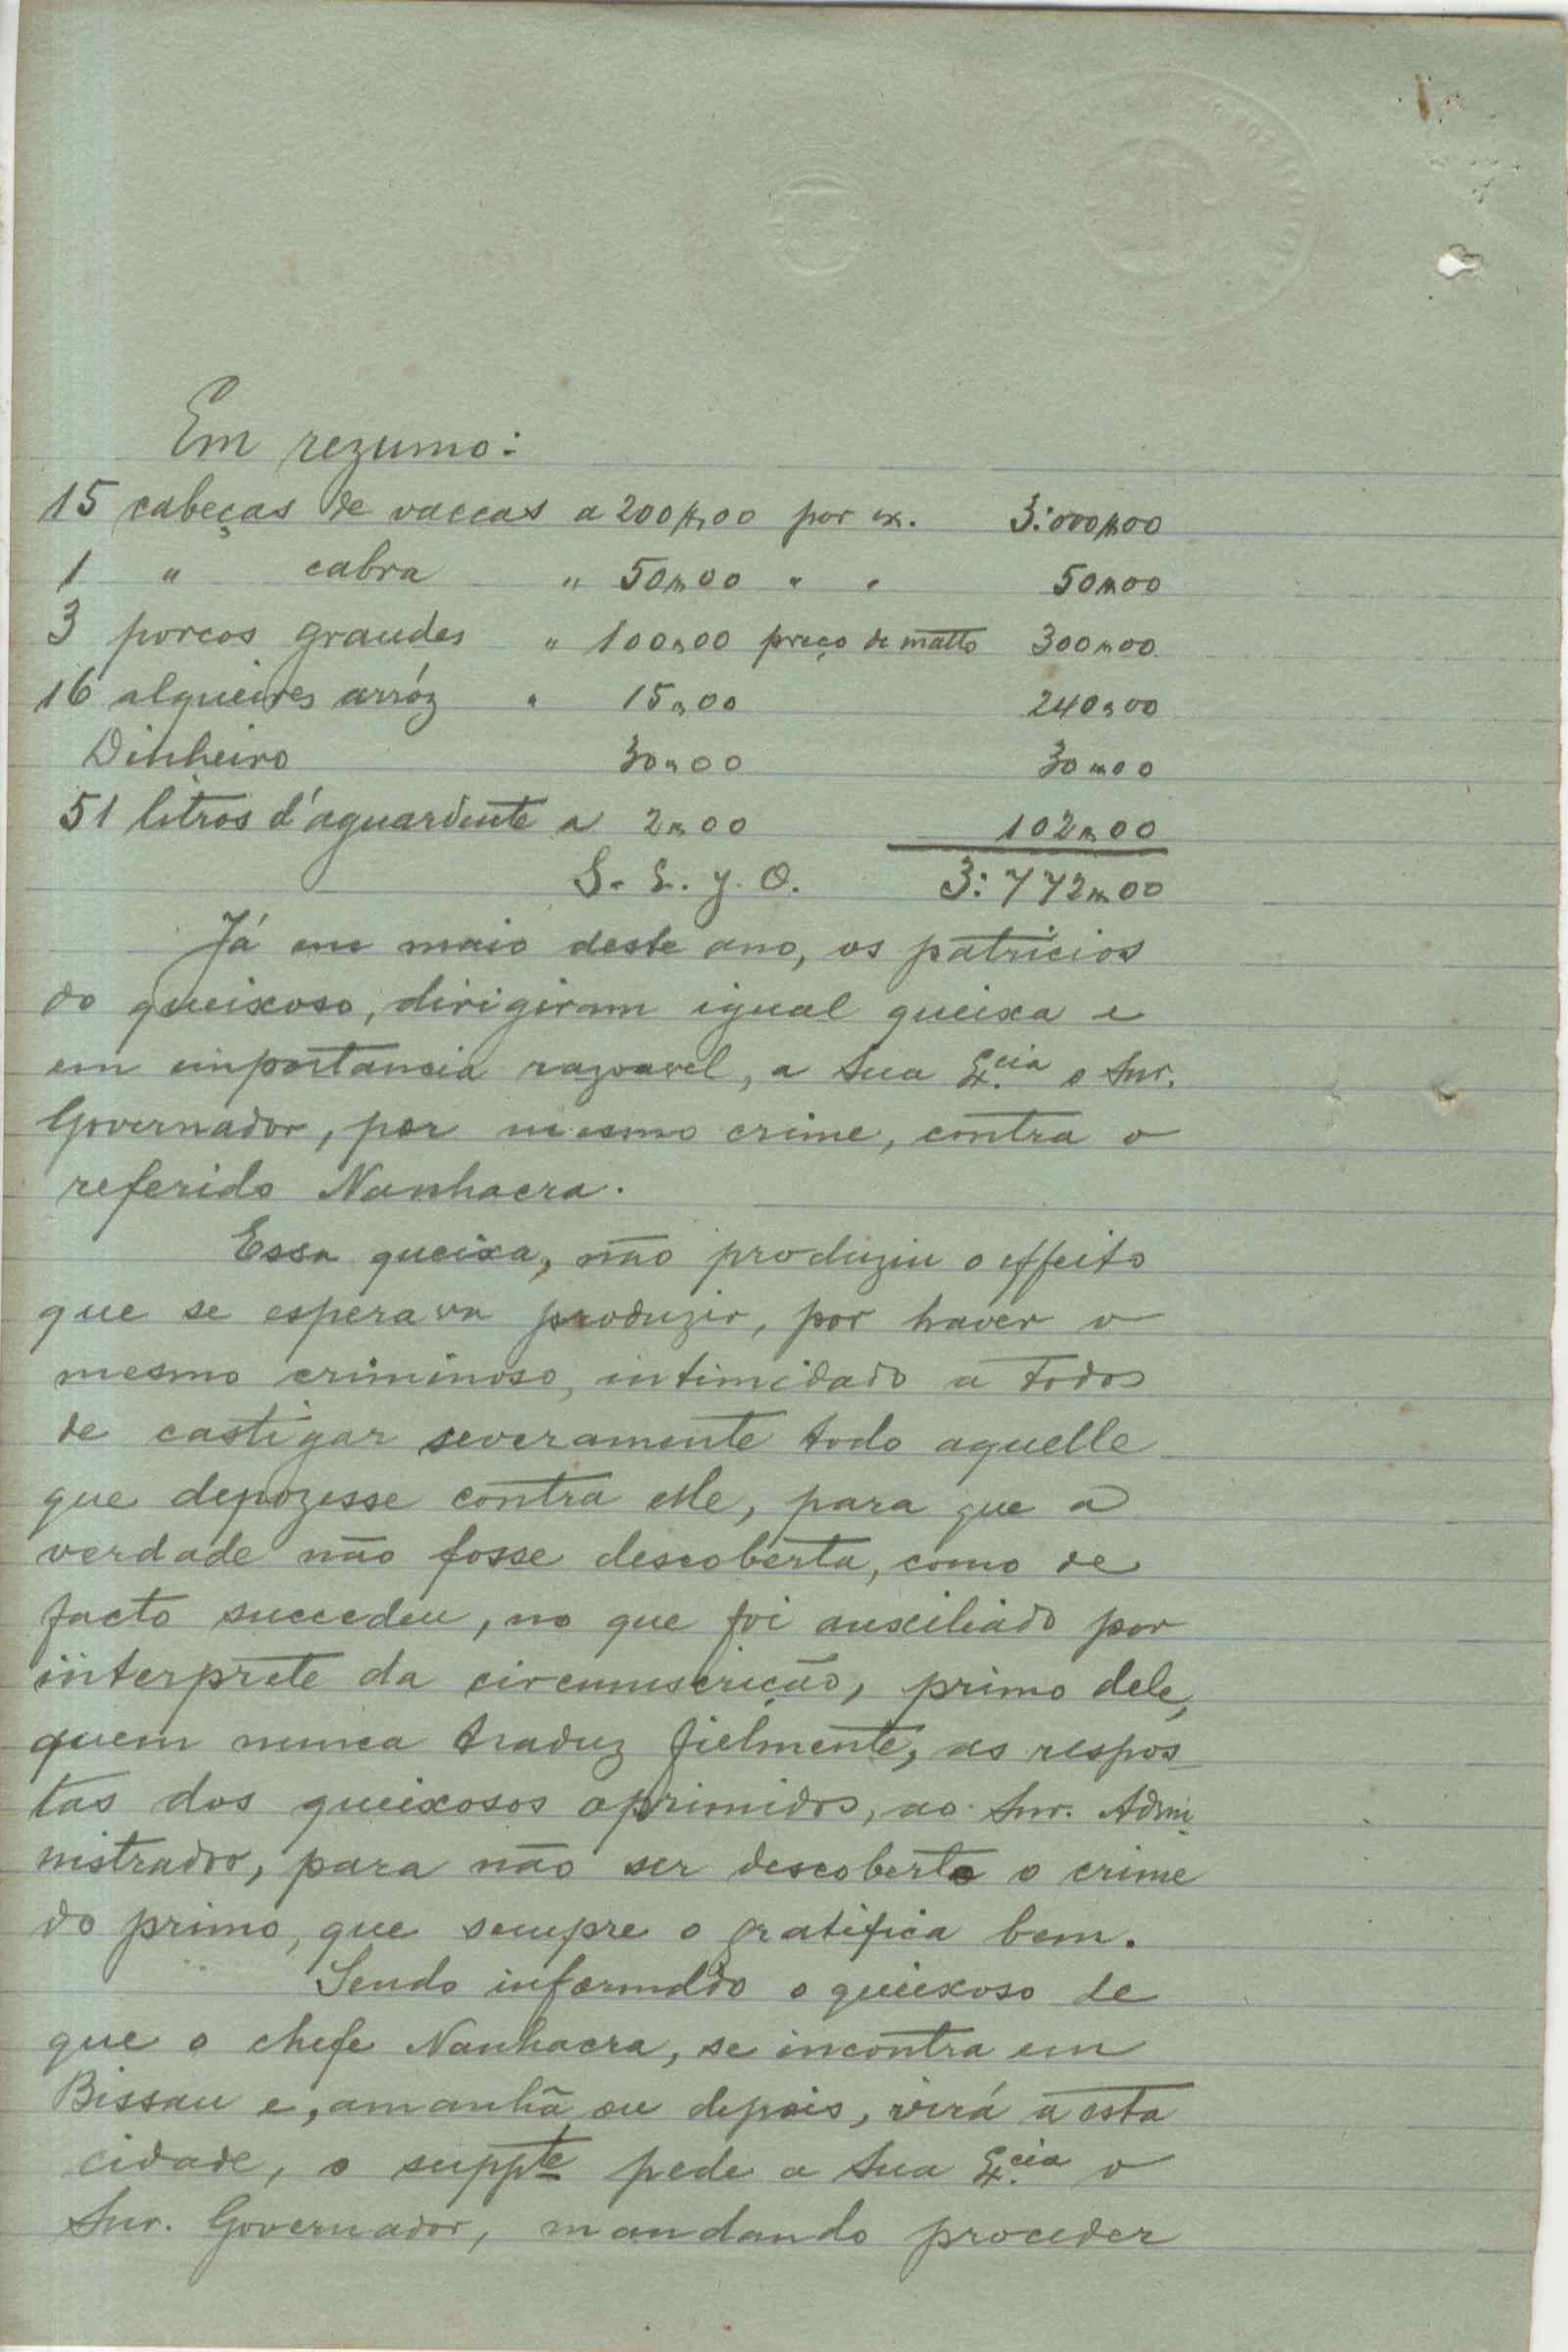 Em rezumo:
15 cabeças de vaccas a 200$00 por ex. 3:000$00
1 " cabra " 50$00 " " 50$00
3 porcos grandes " 100$00 preço de matto 300$00
16 alqueires arróz " 15$00 240$00
Dinheiro 30$00 30$00
51 litros d'aguardente a 2$00 102$00
S. E. y. O. 3:772$00
Já em maio deste ano, os patricios
do queixoso, dirigiram igual queixa e
em importancia razoavel, a Sua Ex.cia o Snr.
Governador, por mesmo crime, contra o
referido Nanhacra.
Essa queixa, não produziu o effeito
que se esperava produzir, por haver o
mesmo criminoso, intimidado a todos
de castigar severamente todo aquelle
que depozesse contra elle, para que a
verdade não fosse descoberta, como de
facto succedeu, no que foi auxiliado por
interprete da circumscrição, primo dele,
quem nunca traduz fielmente, as respos
tas dos queixosos oprimidos, ao Snr. Admi
nistrador, para não ser descoberto o crime
do primo, que sempre o gratifica bem.
Sendo informado o queixoso de
que o chefe Nanhacra, se incontra em
Bissau e, amanhã ou depois, virá a esta
cidade, o suppte pede a Sua Ex.cia o
Snr. Governador, mandando proceder